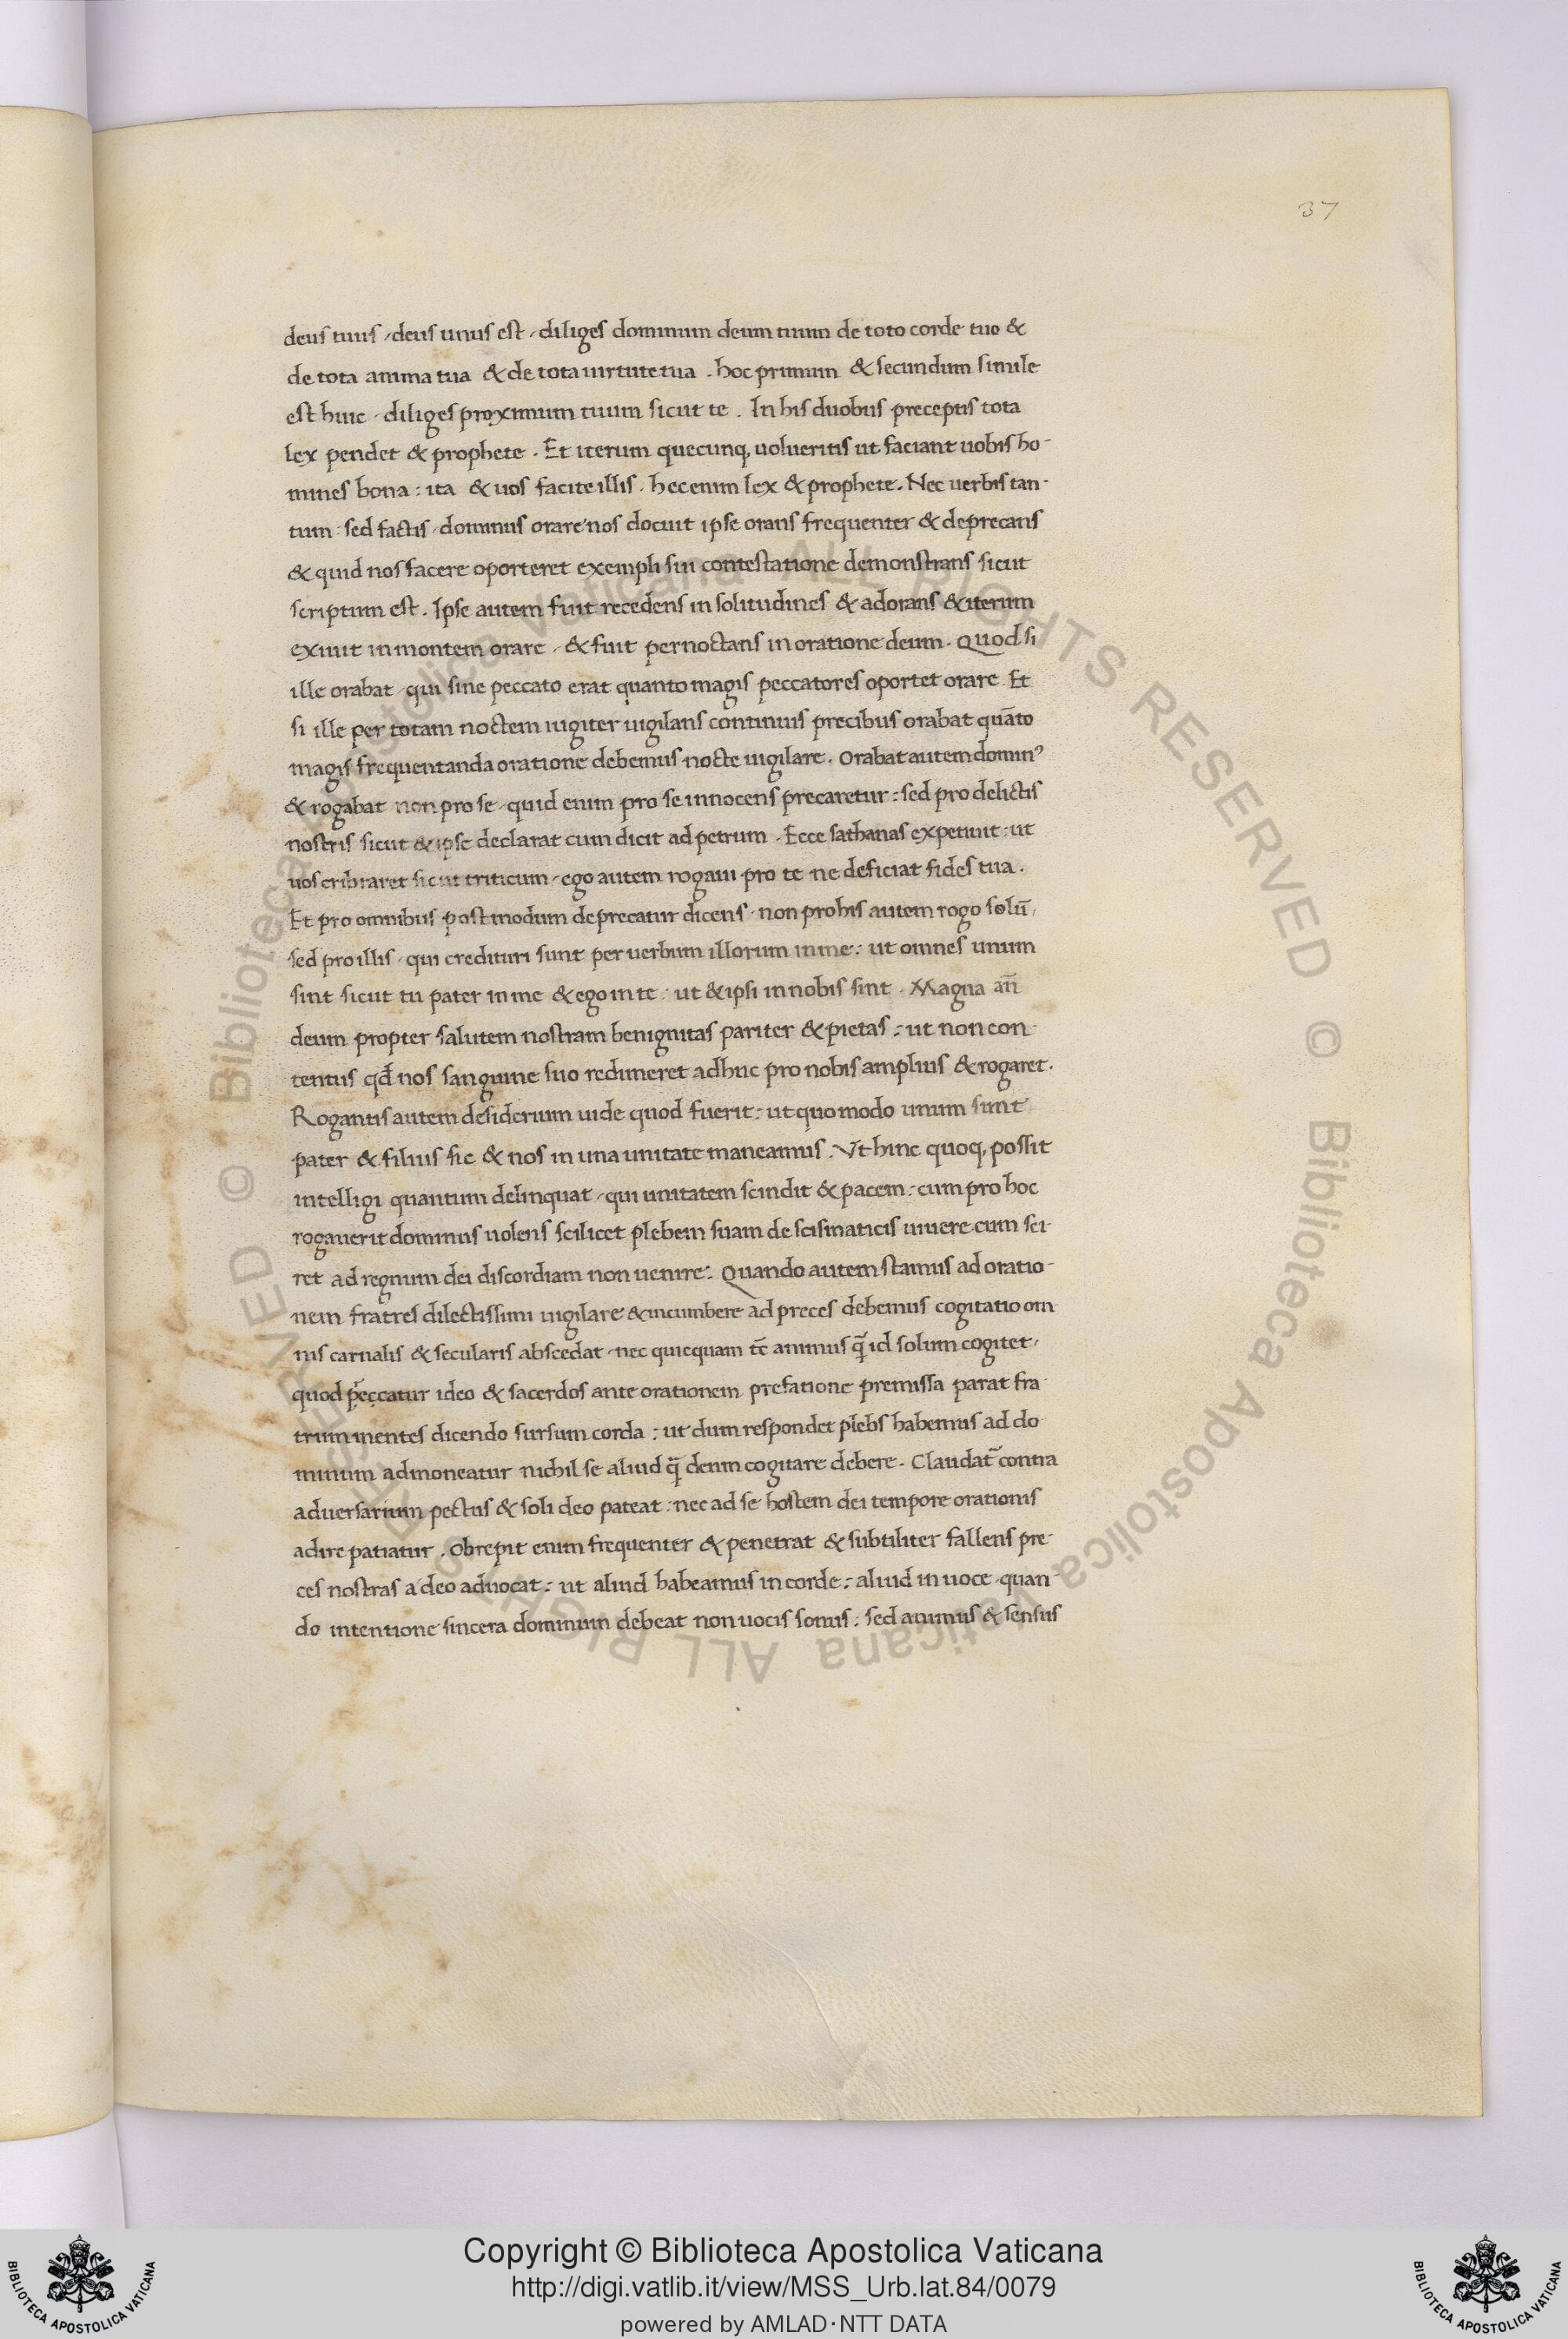 37
deus tuus, deus unus est, diliges dominum deum tuum de toto corde tuo &
de tota anima tua & de tota uirtute tua. hoc primum & secundum simile
est huic. diliges proximum tuum sicut te. In his duobus preceptis tota
lex pendet & prophete. Et iterum quecunq, uolueritis ut faciant uobis ho-
mines bona: ita & uos facite illis. hec enim lex & prophete. Nec uerbis tan-
tum. sed factis. dominus orare nos docuit ipse orans frequenter & deprecans
& quid nos facere oporteret exempli sui contestatione demonstrans sicut
scriptum est. Ipse autem fuit recedens in solitudines & adorans & iterum
exiuit in montem orare, & fuit pernoctans in oratione deum. Quod si
ille orabat, qui sine peccato erat quanto magis peccatores oportet orare. Et
si ille per totam noctem iugiter uigilans continuis precibus orabat quāto
magis frequentanda oratione debemus nocte uigilare. Orabat autem domin⁹
& rogabat non pro se, quid enim pro se innocens precaretur: sed pro delictis
nostris sicut & ipse declarat cum dicit ad petrum. Ecce sathanas expetiuit: ut
uos cribraret sicut triticum, ego autem rogaui pro te ne deficiat fides tua.
Et pro omnibus postmodum deprecatur dicens. non pro his autem rogo solū,
sed pro illis, qui credituri sunt per uerbum illorum in me: ut omnes unum
sint sicut tu pater in me & ego in te: ut & ipsi in nobis sint. Magna añ
deum propter salutem nostram benignitas pariter & pietas: ut non con-
tentus qđ nos sanguine suo redimeret adhuc pro nobis amplius & rogaret.
Rogantis autem desiderium uide quod fuerit: ut quomodo unum sunt
pater & filius sic & nos in una unitate maneamus. Vt hinc quoq, possit
intelligi quantum delinquat, qui unitatem scindit & pacem: cum pro hoc
rogauerit dominus uolens scilicet plebem suam de scismaticis uiuere cum sci-
ret ad regnum dei discordiam non uenire. Quando autem stamus ad oratio-
nem fratres dilectissimi uigilare & incumbere ad preces debemus cogitatio om
nis carnalis & secularis abscedat, nec quicquam tē animus q̄ id solum cogitet,
quod p̄eccatur ideo & sacerdos ante orationem prefatione premissa parat fra
trum mentes dicendo sursum corda: ut dum respondet plebs habemus ad do
minum admoneatur nichil se aliud q̄ deum cogitare debere. Claudat̄ contra
aduersarium pectus & soli deo pateat: nec ad se hostem dei tempore orationis
adire patiatur. Obrepit enim frequenter & penetrat & subtiliter fallens pre-
ces nostras a deo aduocat: ut aliud habeamus in corde: aliud in uoce, quan-
do intentione sincera dominum debeat non uocis sonus: sed animus & sensus
© Biblioteca Apostolica Vaticana ALL RIGHTS RESERVED
© Biblioteca Apostolica Vaticana ALL RIGHTS RESERVED
Copyright © Biblioteca Apostolica Vaticana
http://digi.vatlib.it/view/MSS_Urb.lat.84/0079
powered by AMLAD·NTT DATA
BIBLIOTECA APOSTOLICA VATICANA
BIBLIOTECA APOSTOLICA VATICANA